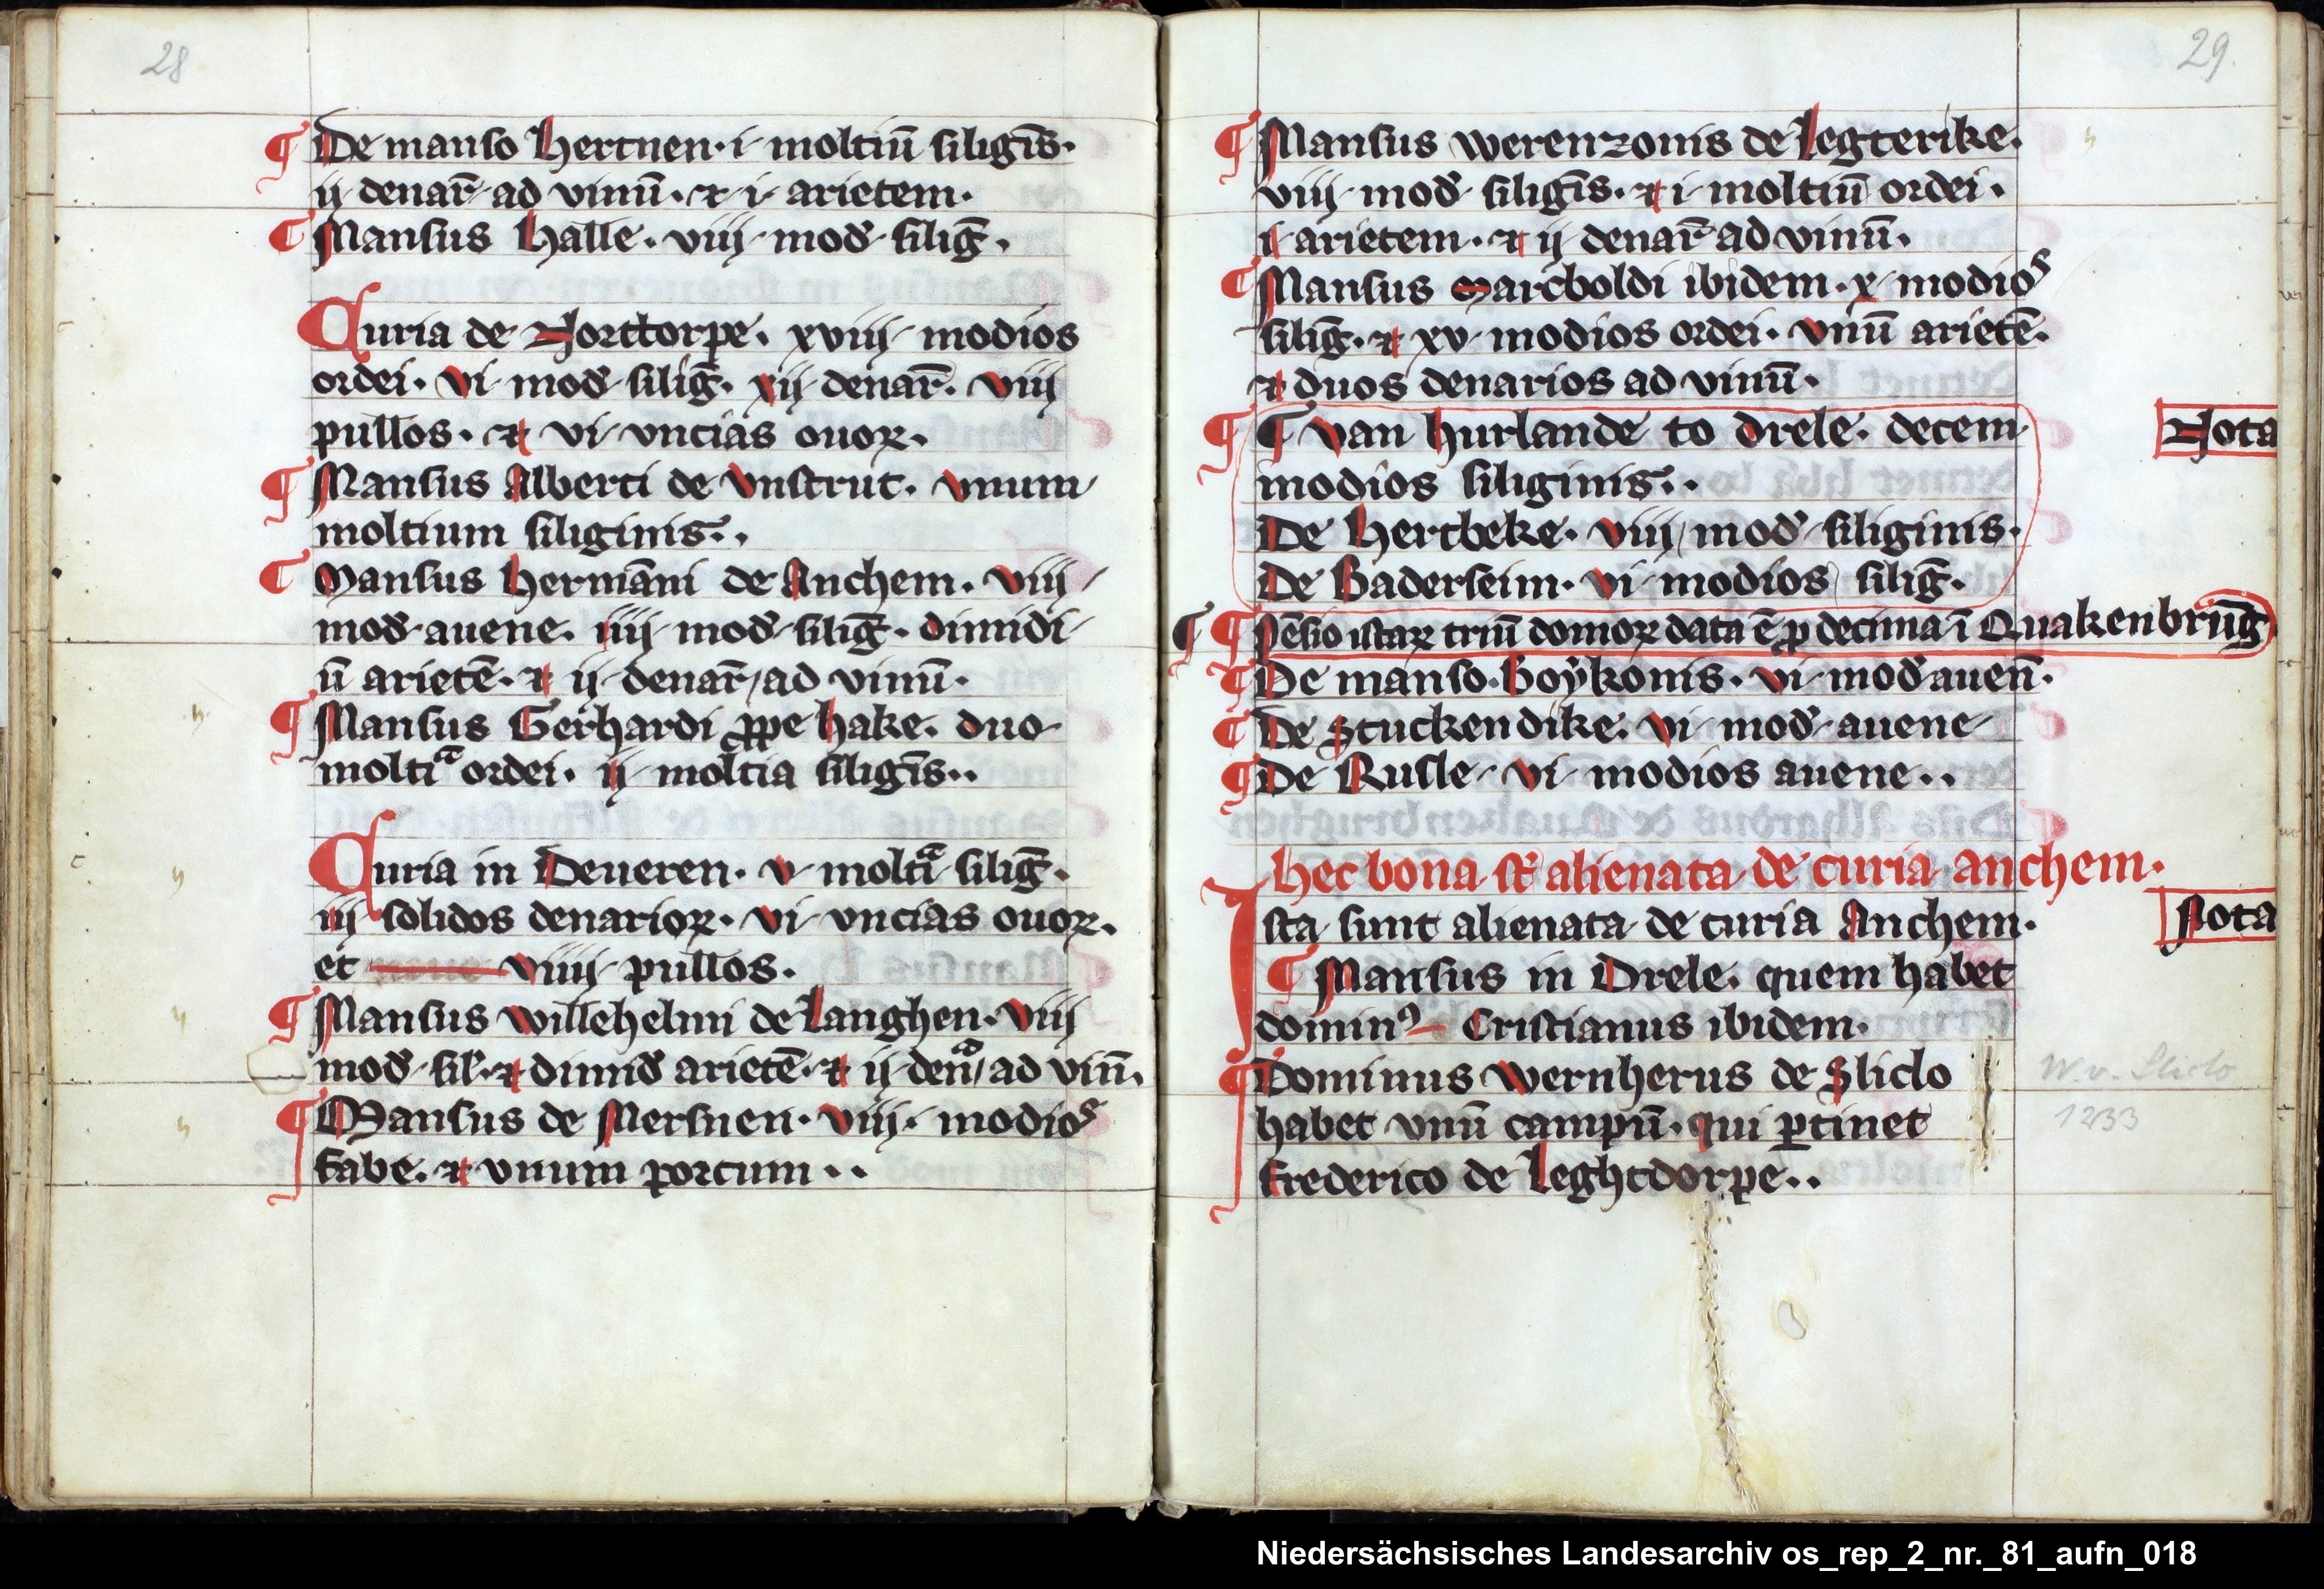 28
¶ De manso Hertnen · i · moltiū siligīs ·
ij · denar̄ · ad vinū · et · i · arietem ·
¶ Mansus Halle · viij · mod̄ · siliḡ ·
Curia de Norttorpe · xviij · modios
ordei · vi · mod̄ · siliḡ · xij · denar̄ · viij
pullos · et · vi · vncias ouoꝝ ·
¶ Mansus Alberti de Vnstrut · vnum
moltium siliginis ·
¶ Mansus Hermāni de Anchem · viij ·
mod̄ · auene · iiij · mod̄ · siliḡ · dimidi-
ū arietē · et ij · denar̄ / ad vinū ·
¶ Mansus Gerhardi ꝓpe hake · duo
moltiᵃ ordei · ij · moltia siligīs ·
Curia in Deueren · v · moltiᵃ siliḡ ·
iij · solidos denarioꝝ · vi · vncias ouoꝝ ·
et viiij · pullos ·
¶ Mansus Willehelmi de Langhen · viij
mod̄ · sil̄ · et dimid̄ arietē · et ij · denᵃ / ad vin̄ ·
¶ Mansus de Mersnen · viij · modios
fabe · et vnum porcum ·
29.
¶ Mansus Werenzonis de Legterike ·
viij · mod̄ · siligīs · et i · moltiū ordei ·
i · arietem · et ij · denar̄ ad vinū ·
¶ Mansus Marcboldi ibidem · x · modios
siliḡ · et xv · modios ordei · vnū arietē ·
et duos denarios ad vinū ·
¶ ¶ Van Hurlande to Drele · decem
modios siliginis ·
Nota
De Hertbeke · viij / mod̄ · siliginis ·
De Baderseim · vi · modios siliḡ ·
¶ ¶ Pēsio istaꝝ triū domoꝝ data ē ꝓ decima ī Quakenbrūg
¶ De manso · Boẏkonis · vi · mod̄ auen̄ ·
¶ De Stuckendike · vi · mod̄ · auene
¶ De Rusle · vi · modios auene ·
hec bona st̄ alienata de curia anchem ·
Ista sunt alienata de curia Anchem ·
Nota
¶ Mansus in Drele · quem habet
dominꝯ Cristianus ibidem ·
¶ Dominus Wernherus de Sliclo
W. v. Sliclo
habet vnū campū · qui ꝑtinet
1233
frederico de Leghtdorpe ·
Niedersächsisches Landesarchiv os_rep_2_nr._81_aufn_018